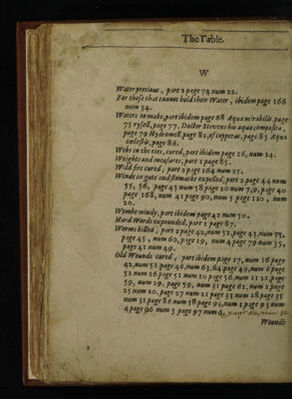 The Table.
W
Water precious, part 2 page 74 num 22.
For those that cannot hold their Water, ibidem page 166
num 34.
Waters to make, part ibidem page 68 Aqua mirabilis page
75 rysell, page 77. Doctor Stevens his aqua composita,
page 79 Hydromell page 82, of copperas, page 83 Aqua
cœlestis, page 86.
Webs in the eies, cured, part ibidem page 16, num 34.
Weights and measures, part 3 page 85.
Wild fire cured, part 2 page 164 num 25.
Winde in guts and stomacke expelled, part 2 page 44 num
55, 56, page 45 num 58 page 20 num 7,9, page 40
page 168, num 41 page 90, num 5 page 120, num
20.
Wombe windy, part ibidem page 42 num 50.
Hard Words expounded, part 1 page 87.
Wormes killed, part 2 page 42, num 52, page 45, num 59,
page 45, num 60, page 19, num 4 page 79 num 35,
page 41 num 49.
Old Wounds cured, part ibidem page 17, num 16 page
42, num 51 page 46, num 63, 64 page 49, num 6 page
52 num 16 page 51 num 10 page 56, num 21 22, page
59, num 29, page 59, num 31 page 61, num 2 page
25 num 20, page 27 num 21 page 33 num 28 page 35
num 31 page 86 num 38 page 94, num 1 page 95 num
4 page 96 num 5 page 97 num 6,
Wounds